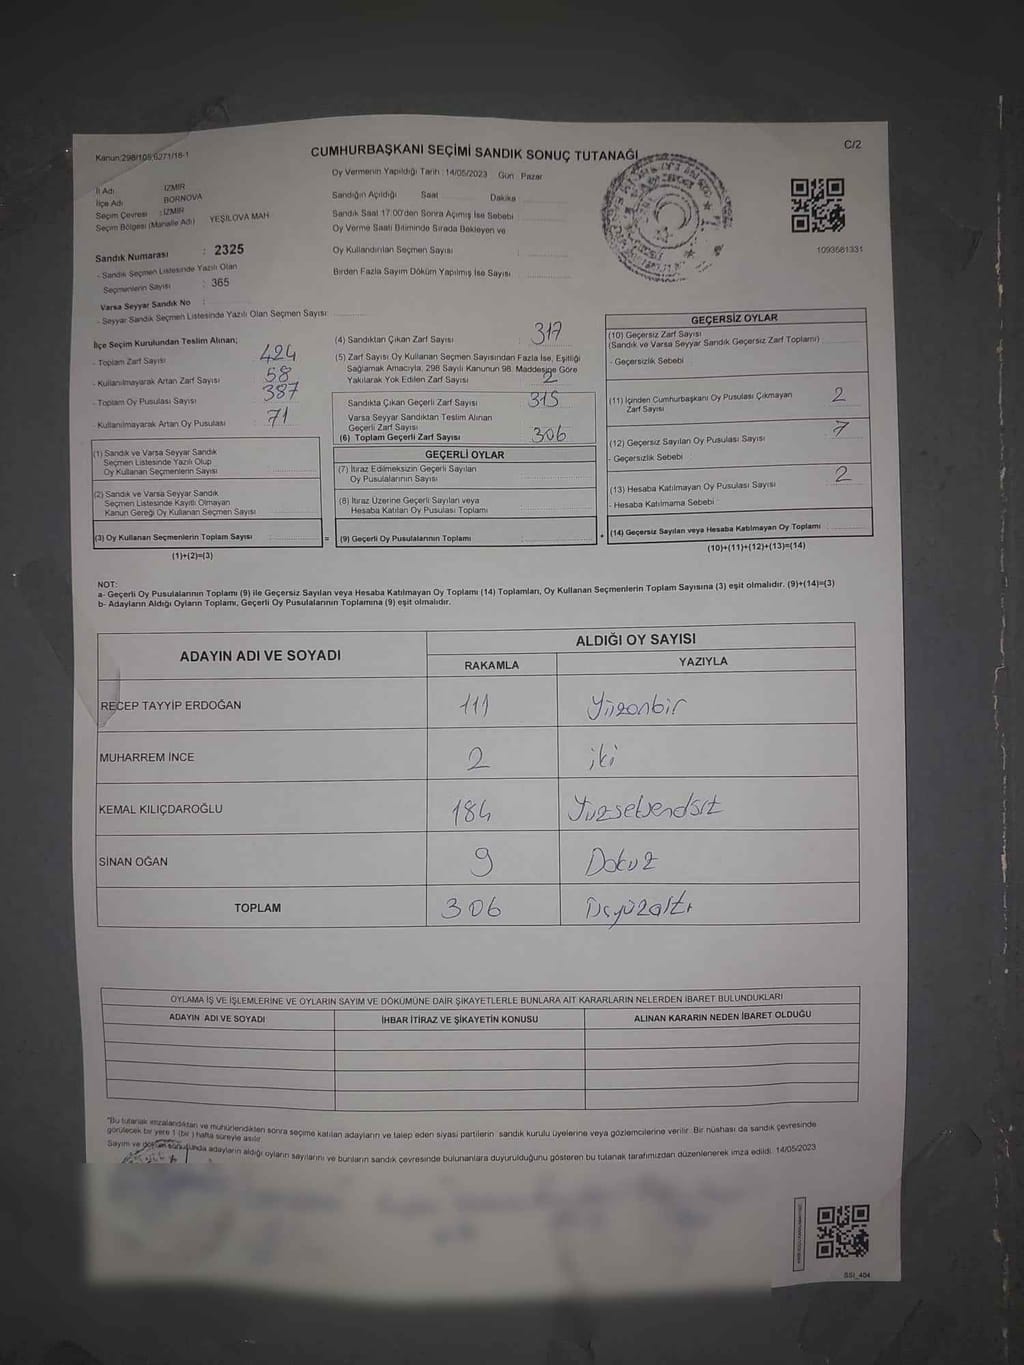 Kanun:298/105;6271/18-1
CUMHURBAŞKANI SEÇİMİ SANDIK SONUÇ TUTANAĞI
C/2
Oy Vermenin Yapıldığı Tarih : 14/05/2023 Gün : Pazar
İl Adı : İZMİR
İlçe Adı : BORNOVA
Seçim Çevresi : İZMİR
Seçim Bölgesi (Mahalle Adı) : YEŞİLOVA MAH
Sandık Numarası : 2325
- Sandık Seçmen Listesinde Yazılı Olan
Seçmenlerin Sayısı : 365
Varsa Seyyar Sandık No :
- Seyyar Sandık Seçmen Listesinde Yazılı Olan Seçmen Sayısı:
Sandığın Açıldığı Saat Dakika
Sandık Saat 17.00'den Sonra Açımış İse Sebebi
Oy Verme Saati Bitiminde Sırada Bekleyen ve
Oy Kullandırılan Seçmen Sayısı :
Birden Fazla Sayım Döküm Yapılmış İse Sayısı :
1093681331
İlçe Seçim Kurulundan Teslim Alınan;
- Toplam Zarf Sayısı : 424
- Kullanılmayarak Artan Zarf Sayısı : 58
- Toplam Oy Pusulası Sayısı : 387
- Kullanılmayarak Artan Oy Pusulası : 71
(1) Sandık ve Varsa Seyyar Sandık
Seçmen Listesinde Yazılı Olup
Oy Kullanan Seçmenlerin Sayısı :
(2) Sandık ve Varsa Seyyar Sandık
Seçmen Listesinde Kayıtlı Olmayan
Kanun Gereği Oy Kullanan Seçmen Sayısı :
(3) Oy Kullanan Seçmenlerin Toplam Sayısı :
(1)+(2)=(3)
(4) Sandıktan Çıkan Zarf Sayısı : 317
(5) Zarf Sayısı Oy Kullanan Seçmen Sayısından Fazla İse, Eşitliği
Sağlamak Amacıyla, 298 Sayılı Kanunun 98. Maddesine Göre
Yakılarak Yok Edilen Zarf Sayısı : 2
Sandıkta Çıkan Geçerli Zarf Sayısı : 315
Varsa Seyyar Sandıktan Teslim Alınan
Geçerli Zarf Sayısı :
(6) Toplam Geçerli Zarf Sayısı : 306
GEÇERLİ OYLAR
(7) İtiraz Edilmeksizin Geçerli Sayılan
Oy Pusulalarının Sayısı :
(8) İtiraz Üzerine Geçerli Sayılan veya
Hesaba Katılan Oy Pusulası Toplamı :
= (9) Geçerli Oy Pusulalarının Toplamı :
GEÇERSİZ OYLAR
(10) Geçersiz Zarf Sayısı
(Sandık ve Varsa Seyyar Sandık Geçersiz Zarf Toplamı)
- Geçersizlik Sebebi
(11) İçinden Cumhurbaşkanı Oy Pusulası Çıkmayan
Zarf Sayısı 2
(12) Geçersiz Sayılan Oy Pusulası Sayısı 7
- Geçersizlik Sebebi
(13) Hesaba Katılmayan Oy Pusulası Sayısı 2
- Hesaba Katılmama Sebebi
+ (14) Geçersiz Sayılan veya Hesaba Katılmayan Oy Toplamı
(10)+(11)+(12)+(13)=(14)
NOT:
a- Geçerli Oy Pusulalarının Toplamı (9) ile Geçersiz Sayılan veya Hesaba Katılmayan Oy Toplamı (14) Toplamları, Oy Kullanan Seçmenlerin Toplam Sayısına (3) eşit olmalıdır. (9)+(14)=(3)
b- Adayların Aldığı Oyların Toplamı, Geçerli Oy Pusulalarının Toplamına (9) eşit olmalıdır.
ADAYIN ADI VE SOYADI
ALDIĞI OY SAYISI
RAKAMLA YAZIYLA
RECEP TAYYİP ERDOĞAN 111 Yüzonbir
MUHARREM İNCE 2 iki
KEMAL KILIÇDAROĞLU 184 Yüzseksendört
SİNAN OĞAN 9 Dokuz
TOPLAM 306 Üçyüzaltı
OYLAMA İŞ VE İŞLEMLERİNE VE OYLARIN SAYIM VE DÖKÜMÜNE DAİR ŞİKAYETLERLE BUNLARA AİT KARARLARIN NELERDEN İBARET BULUNDUKLARI
ADAYIN ADI VE SOYADI İHBAR İTİRAZ VE ŞİKAYETİN KONUSU ALINAN KARARIN NEDEN İBARET OLDUĞU
*Bu tutanak imzalandıktan ve mühürlendikten sonra seçime katılan adayların ve talep eden siyasi partilerin sandık kurulu üyelerine veya gözlemcilerine verilir. Bir nüshası da sandık çevresinde
görülecek bir yere 1 (bir) hafta süreyle asılır.
Sayım ve döküm sonucunda adayların aldığı oyların sayılarını ve bunların sandık çevresinde bulunanlara duyurulduğunu gösteren bu tutanak tarafımızdan düzenlenerek imza edildi. 14/05/2023
SSI_404